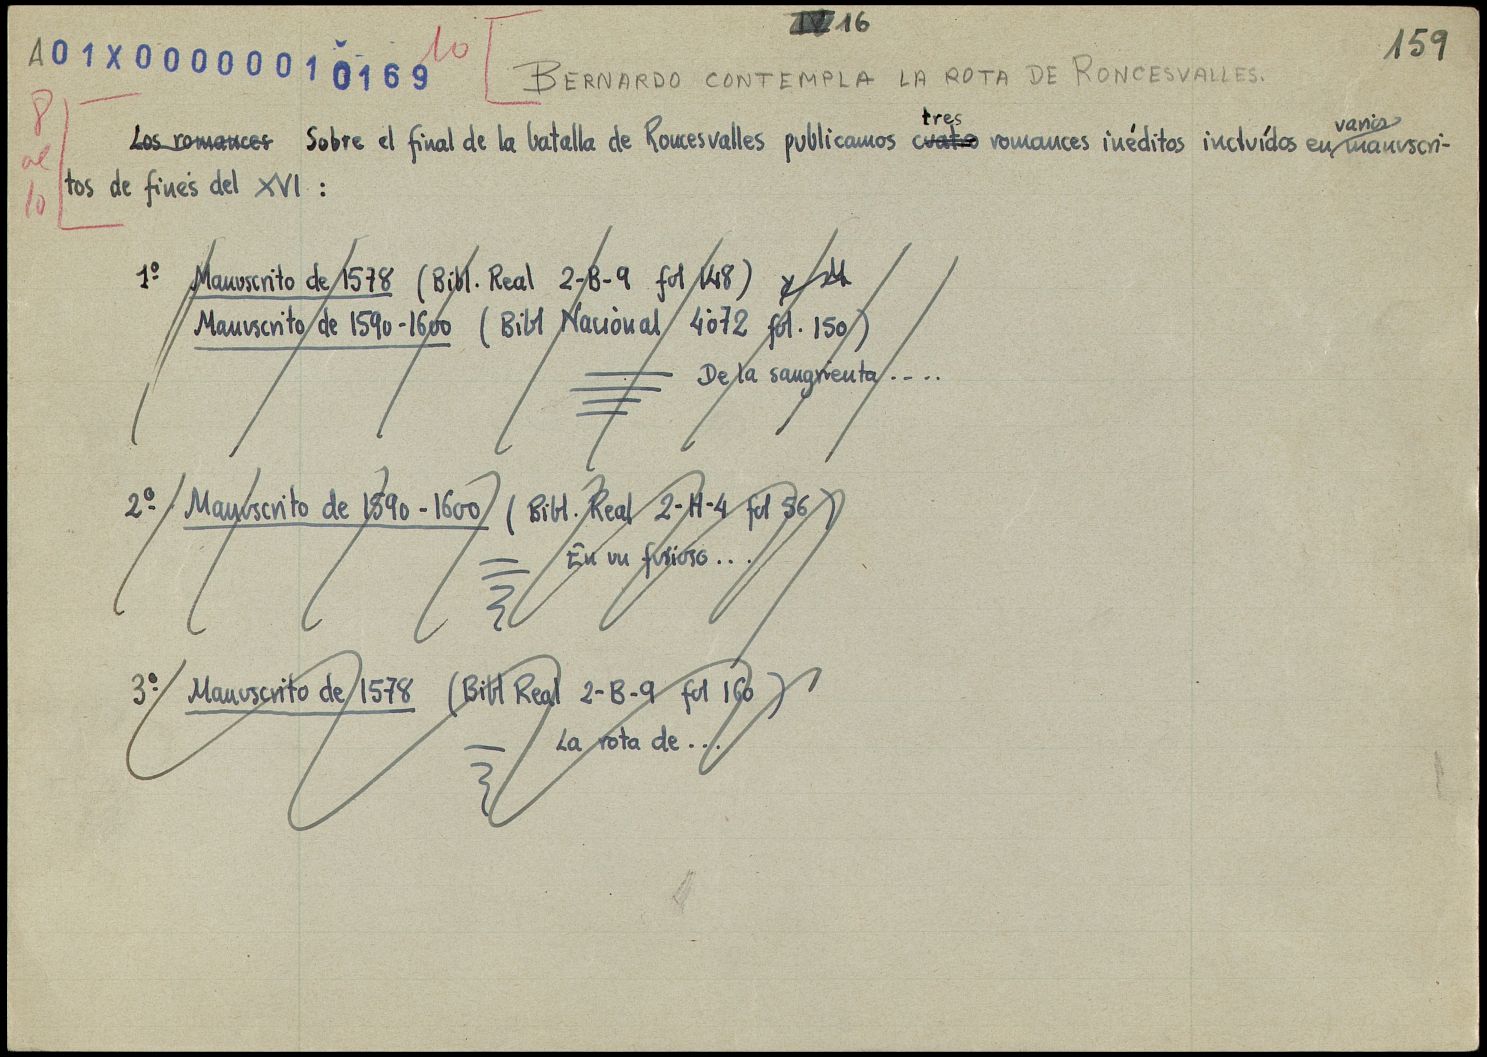 IV 16
159
A01X000000010169
10
BERNARDO CONTEMPLA LA ROTA DE RONCESVALLES.
8
al
10
Los romances Sobre el final de la batalla de Roncesvalles publicamos cuatro tres romances inéditos incluídos en varios manuscri-
tos de fines del XVI :
1º Manuscrito de 1578 (Bibl. Real 2-B-9 fol 148)
Manuscrito de 1590-1600 (Bibl Nacional 4072 fol. 150)
De la sangrienta .....
2º Manuscrito de 1590-1600 (Bibl. Real 2-H-4 fol 56)
En un furioso ...
3º Manuscrito de 1578 (Bibl Real 2-B-9 fol 160)
La rota de ...